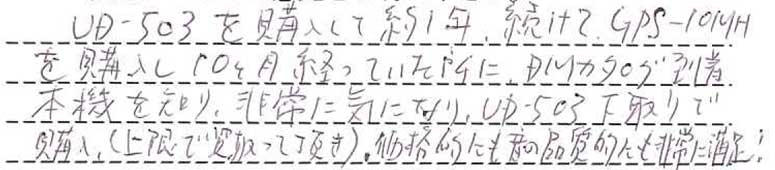 UD-503を購入して約1年、続けて、GPS-10MH
を購入し10ヶ月経っていた所に、DMカタログ到着
本機を知り、非常に気になり、UD-503下取りで
購入、(上限で買取って頂き)、価格的にも音の品質的にも非常に満足!